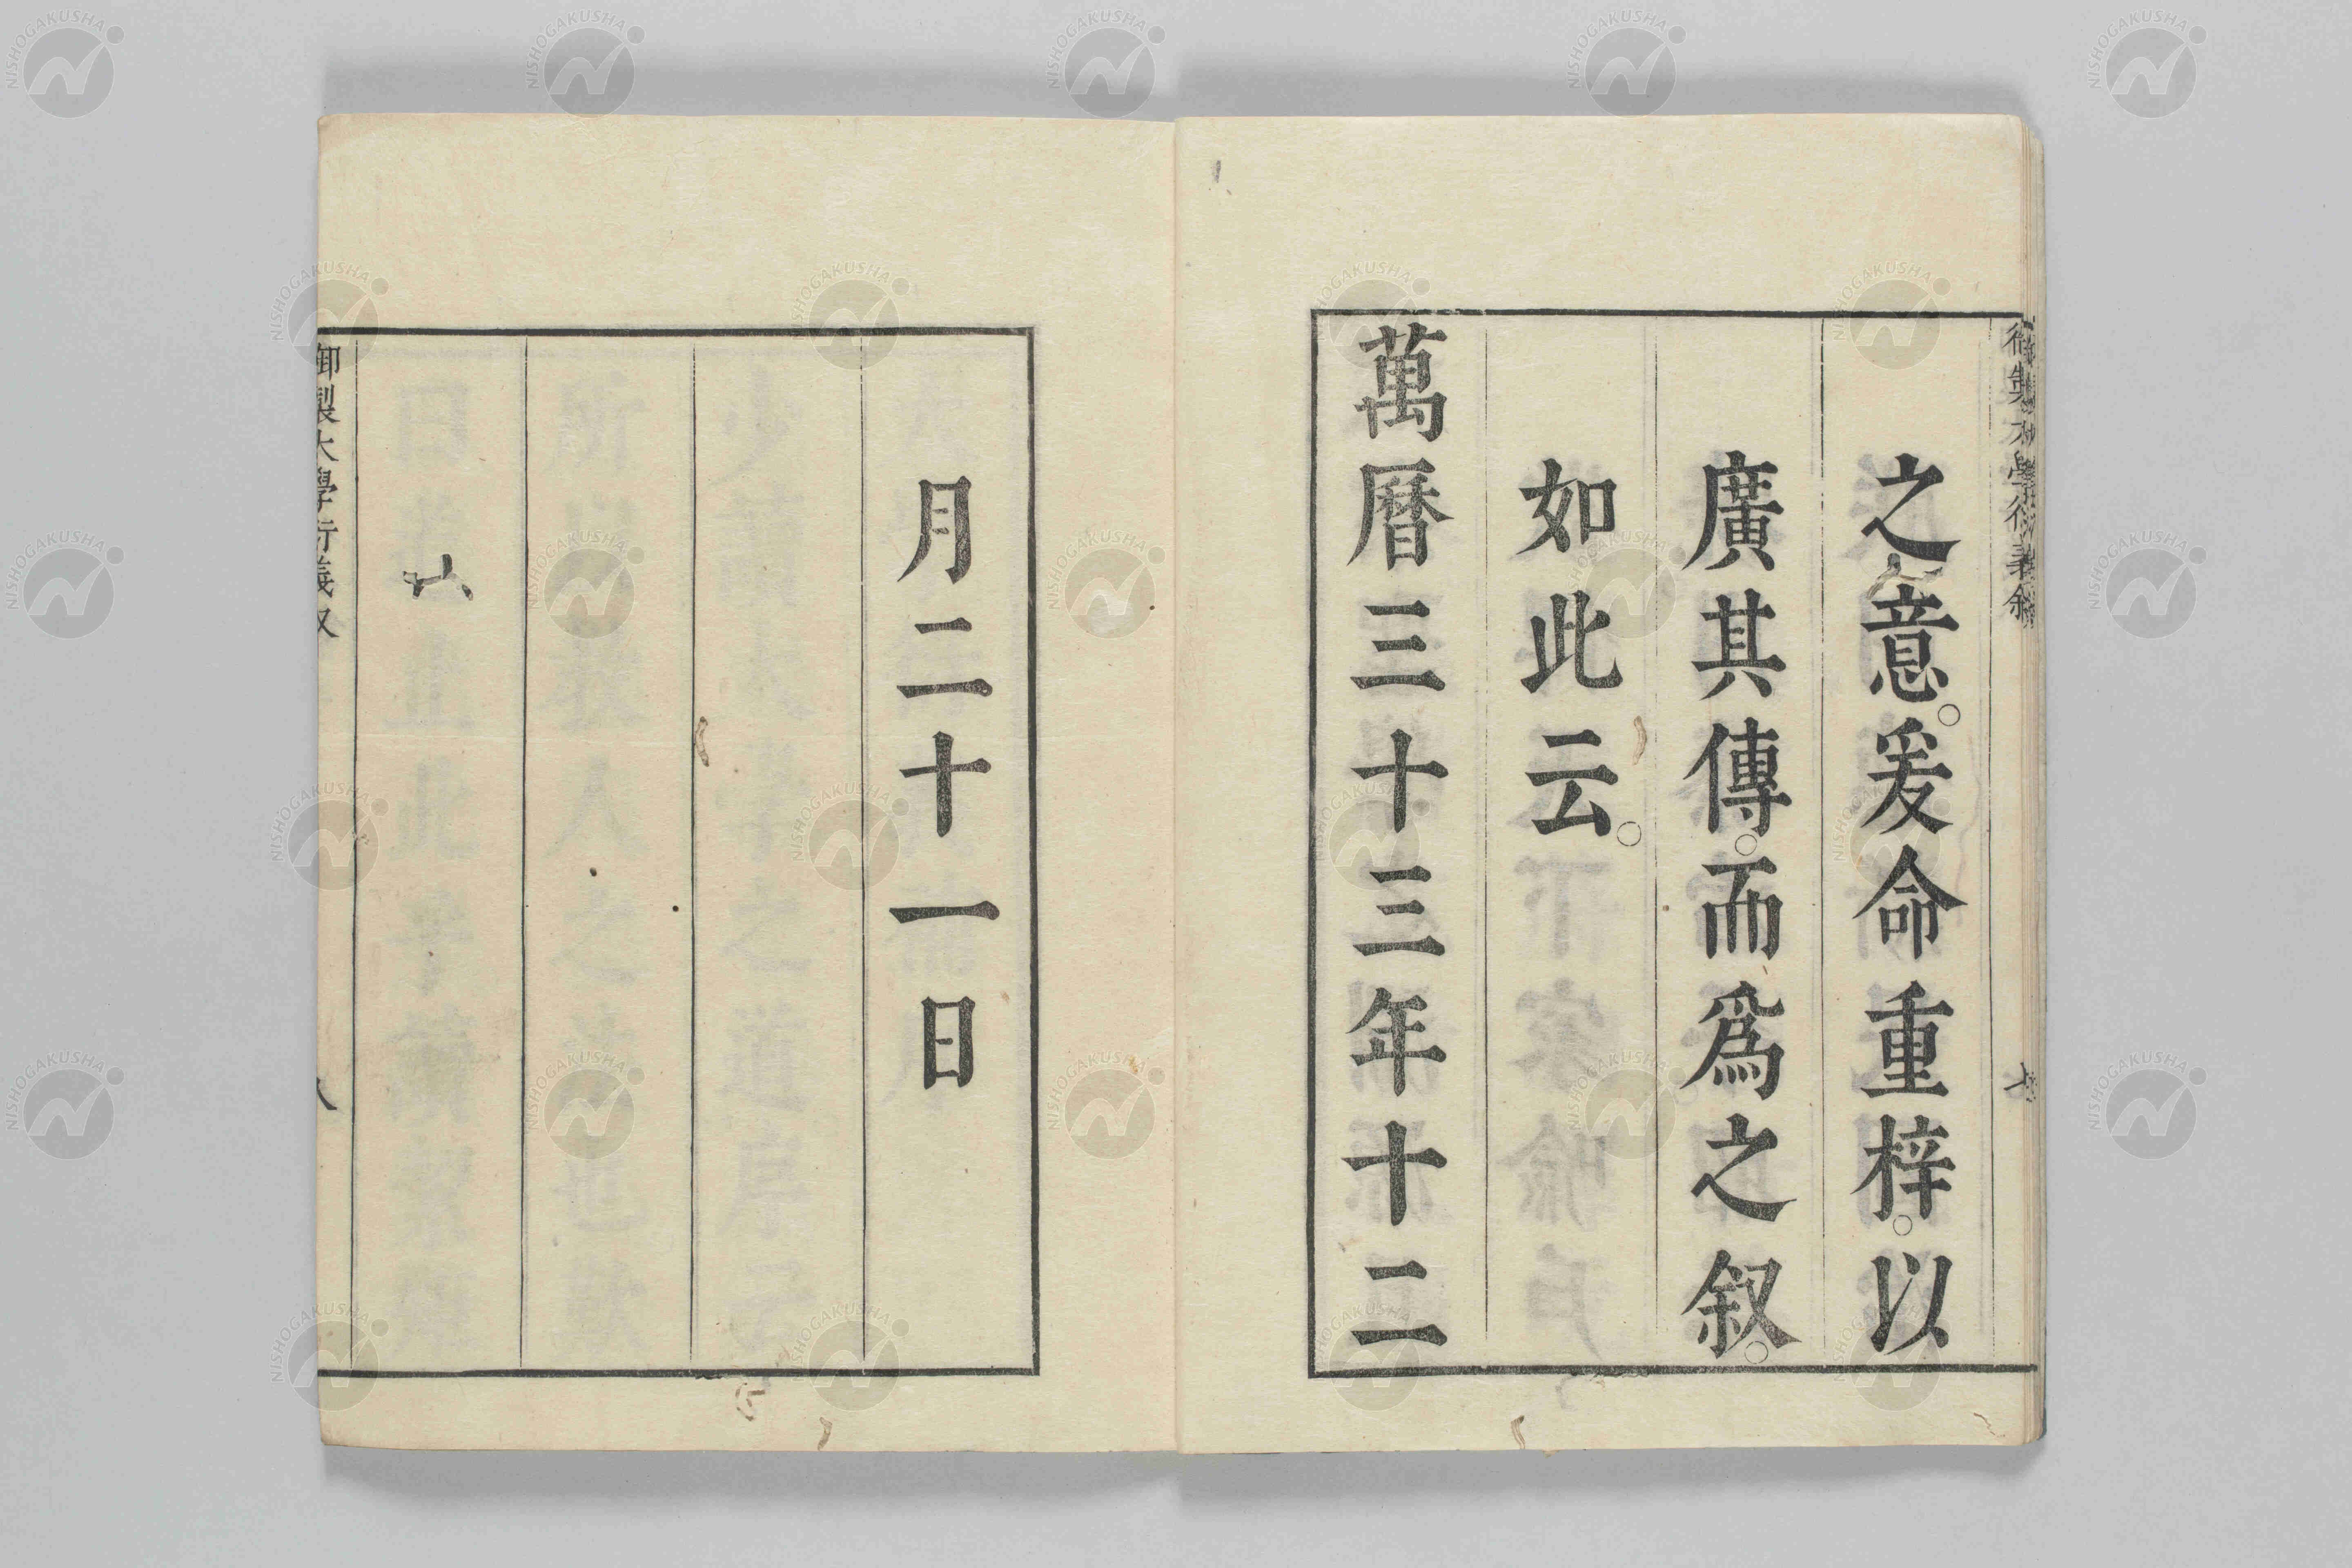 御製大學衍義叙
七
之意。爰命重梓。以
廣其傳。而爲之叙。
如此云。
萬曆三十三年十二
月二十一日
御製大學衍義叙
八
NISHOGAKUSHA